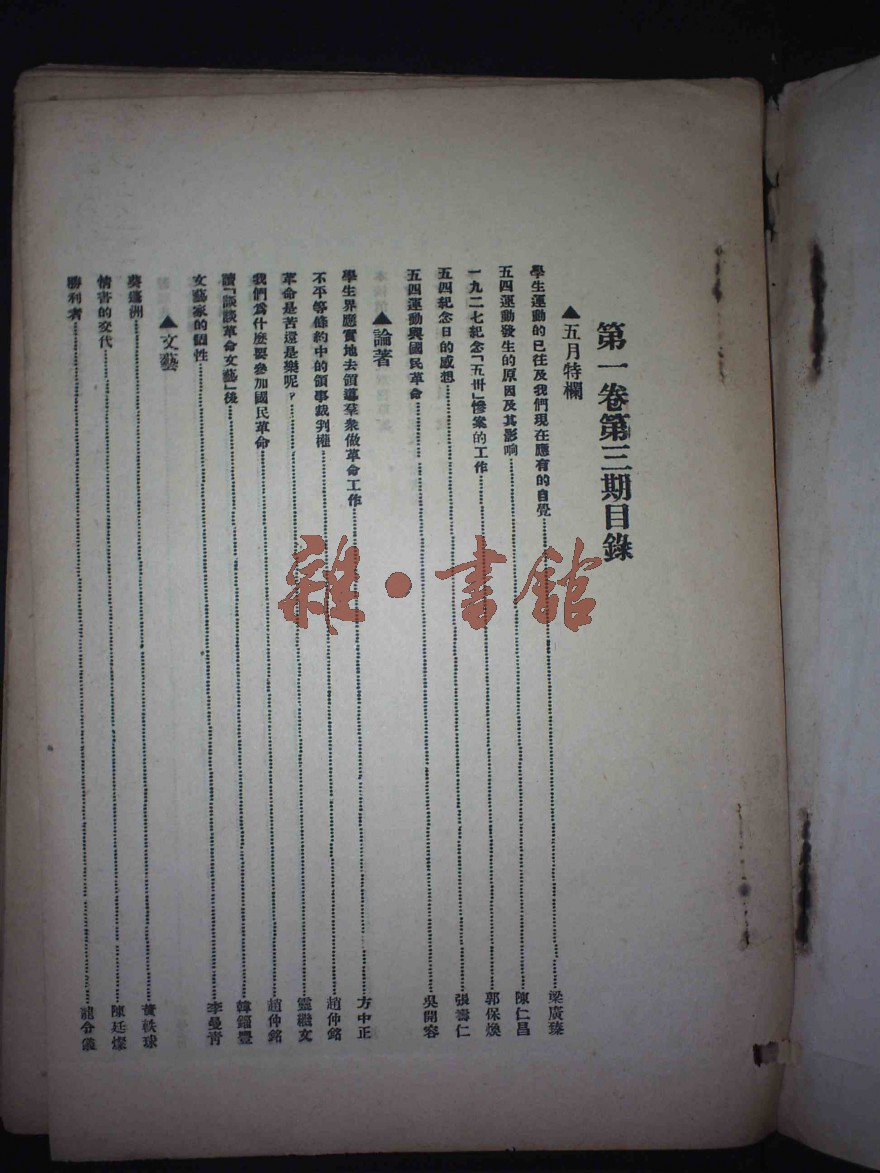 第一卷第三期目錄
▲五月特欄
學生運動的已往及我們現在應有的自覺……梁廣臻
五四運動發生的原因及其影响……陳仁昌
一九二七紀念「五卅」慘案的工作……郭保煥
五四紀念日的感想……張壽仁
五四運動與國民革命……吳開容
▲論著
學生界應實地去領導羣衆做革命工作……方中正
不平等條約中的領事裁判權……趙仲銘
革命是苦還是樂呢?……繼文
我們爲什麼要參加國民革命……趙仲銘
讀「談談革命文藝」後……韓豐
文藝家的個性……李曼青
▲文藝
葵蓬洲……黃軼球
情書的交代……陳廷燦
勝利者……龍令儀
雜·書館